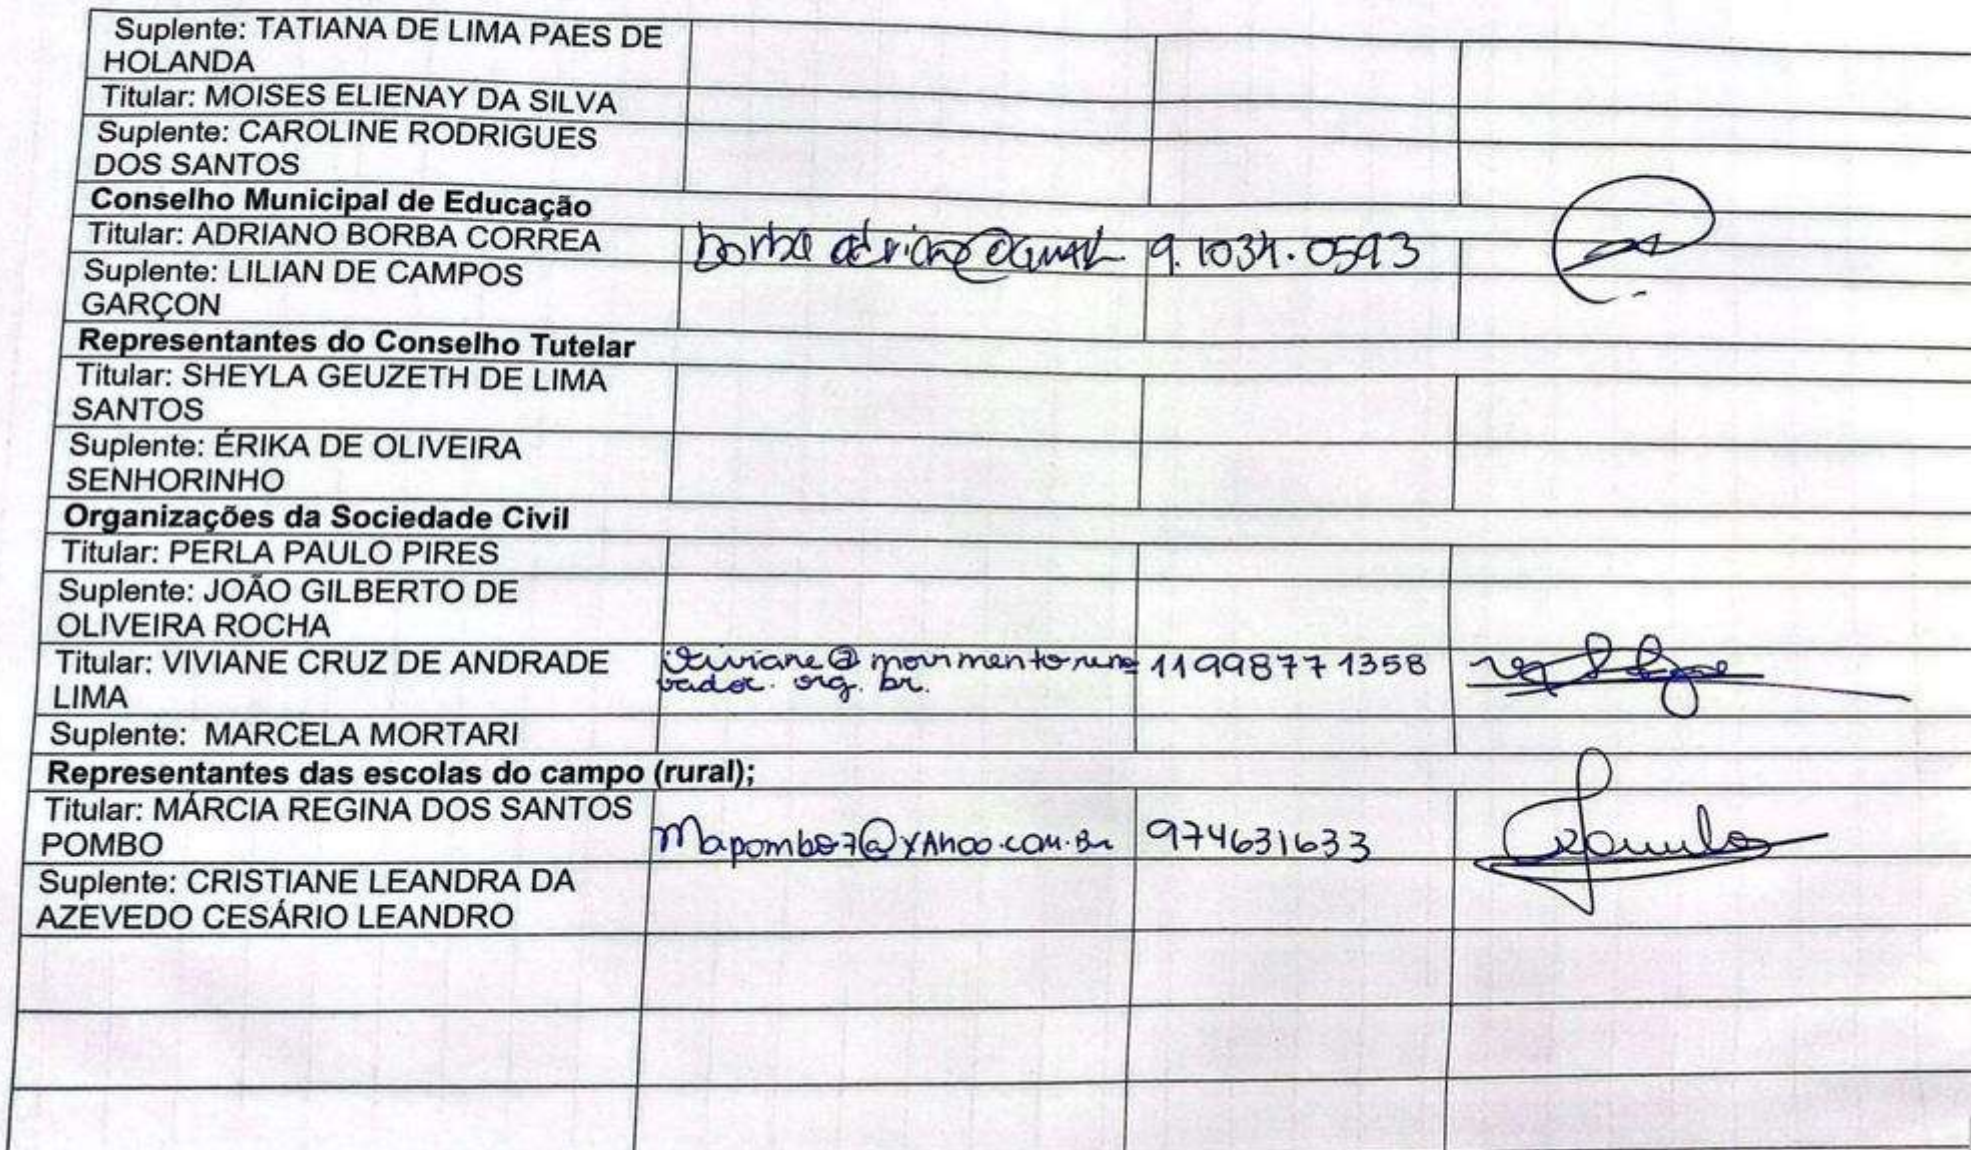 Suplente: TATIANA DE LIMA PAES DE
HOLANDA
Titular: MOISES ELIENAY DA SILVA
Suplente: CAROLINE RODRIGUES
DOS SANTOS
Conselho Municipal de Educação
Titular: ADRIANO BORBA CORREA
9.1034.0593
Suplente: LILIAN DE CAMPOS
GARÇON
Representantes do Conselho Tutelar
Titular: SHEYLA GEUZETH DE LIMA
SANTOS
Suplente: ÉRIKA DE OLIVEIRA
SENHORINHO
Organizações da Sociedade Civil
Titular: PERLA PAULO PIRES
Suplente: JOÃO GILBERTO DE
OLIVEIRA ROCHA
Titular: VIVIANE CRUZ DE ANDRADE
LIMA
viviane@movimentoreno
vador.org.br.
11998771358
Suplente: MARCELA MORTARI
Representantes das escolas do campo (rural);
Titular: MÁRCIA REGINA DOS SANTOS
POMBO
Mapombo7@yAhoo.com.Br
974631633
Suplente: CRISTIANE LEANDRA DA
AZEVEDO CESÁRIO LEANDRO